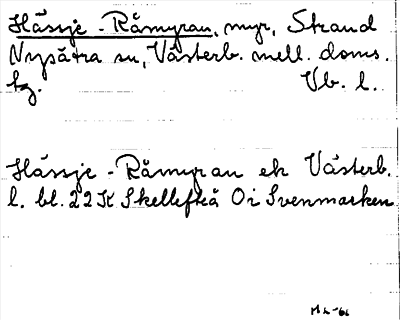 Hässje-Råmyran, myr, Strand
Nysätra sn, Västerb. mell. doms.
tg. Vb. l.
Hässje-Råmyran ek Västerb.
l. bl. 22K Skellefteå Oi Svenmarken